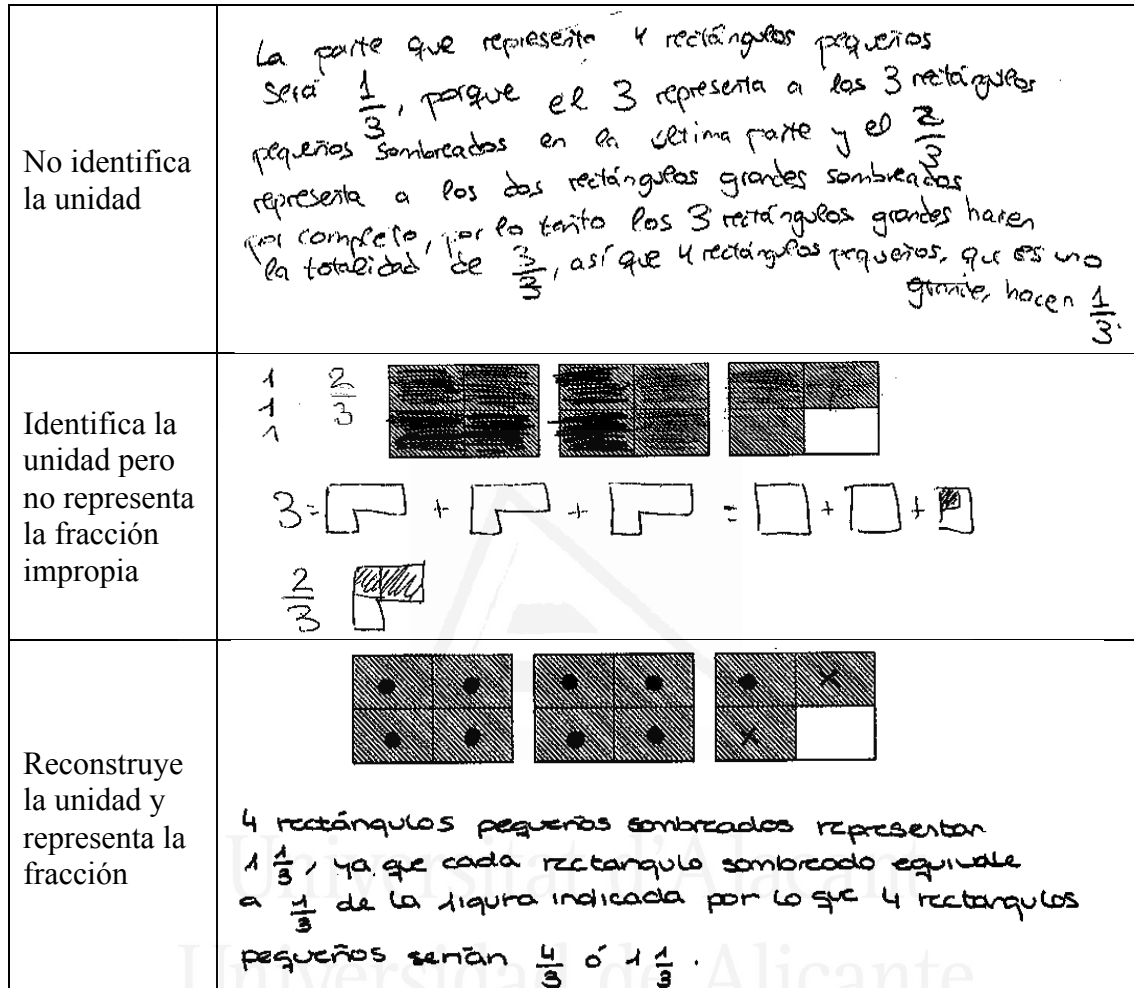 No identifica
la unidad
La parte que representa 4 rectángulos pequeños
será 1/3, porque el 3 representa a los 3 rectángulos
pequeños sombreados en la última parte y el 2/3
representa a los dos rectángulos grandes sombreados
por completo, por lo tanto los 3 rectángulos grandes hacen
la totalidad de 3/3, así que 4 rectángulos pequeños, que es uno
grande, hacen 1/3.
Identifica la
unidad pero
no representa
la fracción
impropia
1
1
1
2/3
3 = + + = + +
2/3
Reconstruye
la unidad y
representa la
fracción
4 rectángulos pequeños sombreados representan
1 1/3, ya que cada rectangulo sombreado equivale
a 1/3 de la figura indicada por lo que 4 rectangulos
pequeños serían 4/3 ó 1 1/3.
Universitat d'Alacant
Universidad de Alicante